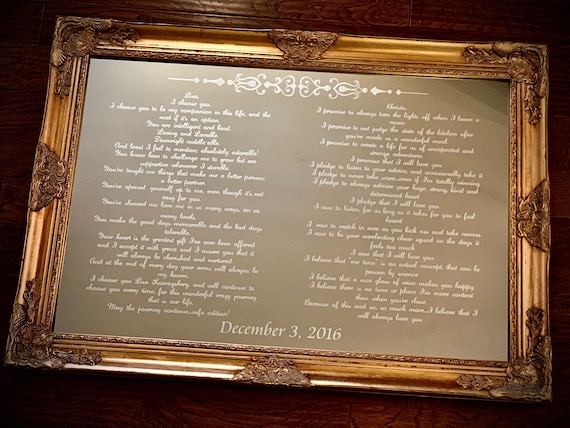 Lisa,
I choose you.
I choose you to be my companion in this life, and the
next if it's an option.
You are intelligent and kind.
Loving and Lovable.
Downright cuddle able.
And least I fail to mention: absolutely adorable!
You know how to challenge me to grow but are
supportive whenever I stumble.
You've taught me things that make me a better person,
a better partner.
You've opened yourself up to me, even though it's not
easy for you.
You've showed me love me in so many ways on so
many levels.
You make the good days memorable and the bad days
tolerable.
Your heart is the greatest gift I've ever been offered
and I accept it with grace and I assure you that it
will always be cherished and nurtured.
And at the end of every day your arms will always be
my haven.
I choose you Lisa and will continue to
choose you every time, for this wonderful crazy journey
that is our life.
May the journey continue...wife edition!
Christa,
I promise to always turn the lights off when I leave a
room
I promise to not judge the state of the kitchen after
you've made us a wonderful meal.
I promise to create a life for us of unexpected and
strange adventures
I promise that I will love you
I pledge to listen to your advice, and occasionally take it
I pledge to never take uwe...even if I'm totally winning
I pledge to always admire your huge, strong, kind and
determined heart
I pledge that I will love you
I vow to listen, for as long as it takes for you to feel
heard
I vow to watch in awe as you kick ass and take names
I vow to be your unrelenting cheer squad on the days it
feels too much
I vow that I will love you
I believe that "me time" is an actual concept, that can be
proven by science
I believe that a nice glass of wine makes you happy
I believe there is no time or place I'm more content
than when you're close
Because of this and so, so much more...I believe that I
will always love you
December 3, 2016